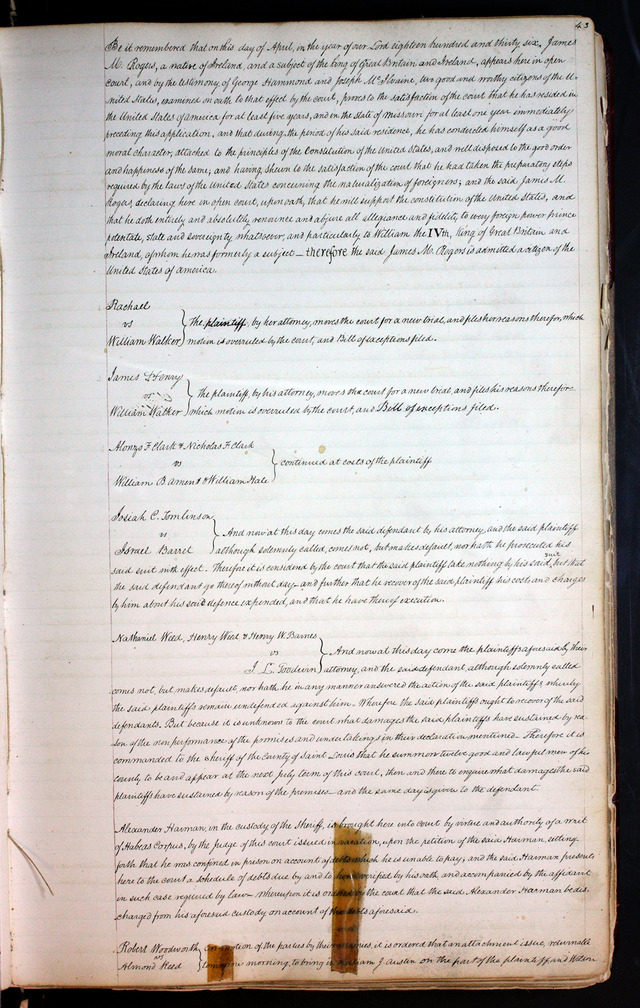 43
Be it remembered that on this day of April, in the year of our Lord eighteen hundred and thirty six, James
M. Rogers, a native of Ireland, and a subject of the king of Great Britain and Ireland, appears here in open
court, and by the testimony of George Hammond and Joseph McIlvaine, two good and worthy citizens of the U-
nited States, examined on oath to that effect by the court, proves to the satisfaction of the court that he has resided in
the United States of america for at least five years, and in the state of missouri for at least one year immediately
preceding this application, and that during the period of his said residence, he has conducted himself as a good
moral character, attached to the principles of the constitution of the United States, and well disposed to the good order
and happiness of the same; and having shewn to the satisfaction of the court that he had taken the preparatory steps
required by the laws of the United States concerning the naturalization of foreigners; and the said James M.
Rogers, declaring here in open court, upon oath, that he will support the constitution of the United States, and
that he doth entirely and absolutely renounce and abjure all allegiance and fidelity to every foreign power prince
potentate, state and sovereignty whatsoever, and particularly to William the IVth, King of Great Britain and
Ireland, of whom he was formerly a subject — therefore the said James M. Rogers is admitted a citizen of the
United States of america.
Rachael
vs
William Walker
the plaintiff, by her attorney, moves the court for a new trial, and files her reasons therefor, which
motion is overruled by the court, and Bill of exceptions filed.
James L Henry
vs
William Walker
the plaintiff, by his attorney, moves the court for a new trial, and files his reasons therefore
which motion is overruled by the court, and Bill of exceptions filed.
Alonzo F Clark & Nicholas F Clark
vs
William B Ament & William Hale
continued at costs of the plaintiff
Josiah C. Tomlinson
vs
Israel Barret
And now at this day comes the said defendant by his attorney, and the said plaintiff
although solemnly called, comes not, but makes default, nor hath he prosecuted his
said suit with effect. Therefore it is considered by the court that the said plaintiff take nothing by his said suit, but that
the said defendant go thereof without day — and further that he recover of the said plaintiff his costs and charges
by him about his said defence expended, and that he have thereof execution.
Nathaniel Weed, Henry Weed & Henry W. Barnes
vs
J. L. Goodwin
And now at this day come the plaintiffs aforesaid by their
attorney, and the said defendant, although solemnly called
comes not, but makes default, nor hath he in any manner answered the action of the said plaintiffs, whereby
the said plaintiffs remain undefended against him. Wherefor the said plaintiffs ought to recover of the said
defendants. But because it is unknown to the court what damages the said plaintiffs have sustained by rea-
son of the non performance of the promises and undertakings in their declaration mentioned. Therefore it is
commanded to the Sheriff of the County of Saint Louis that he summon twelve good and lawful men of his
county to be and appear at the next July term of this court, then and there to enquire what damages the said
plaintiffs have sustained by reason of the premises — and the same day is given to the defendant.
Alexander Harman, in the custody of the Sheriff, is brought here into court by virtue and authority of a writ
of Habeas Corpus, by the judge of this court issued in vacation, upon the petition of the said Harman, setting
forth that he was confined in prison on account of debts which he is unable to pay; and the said Harman presents
here to the court a schedule of debts due by and to him verified by his oath, and accompanied by the affidavit
in such case required by law — whereupon it is ordered by the court that the said Alexander Harman be dis-
charged from his aforesaid custody on account of the debts aforesaid.
Robert Woodworth
vs
Almond Weed
On motion of the parties by their attornies, it is ordered that an attachment issue, returnable
tomorrow morning, to bring in William J. Austin on the part of the plaintiff, and Wilson